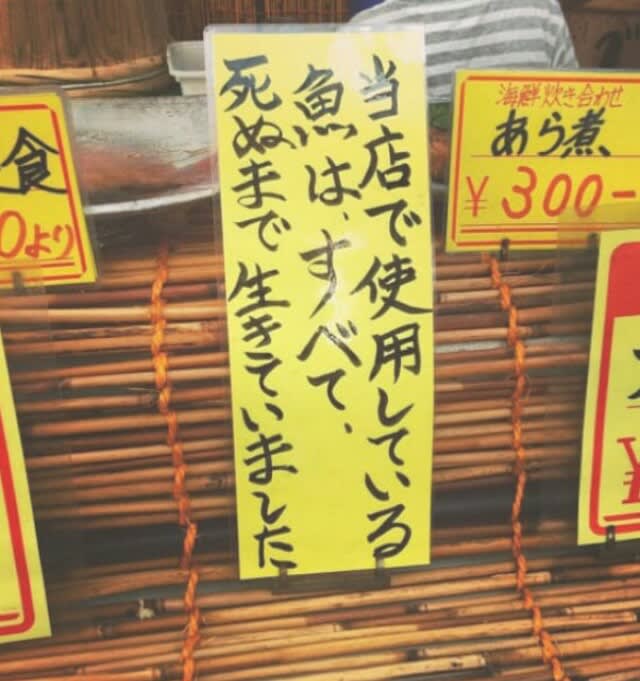 当店で使用している
魚は、すべて、
死ぬまで生きていました
海鮮炊き合わせ
あら煮
¥300-
食
0より
¥